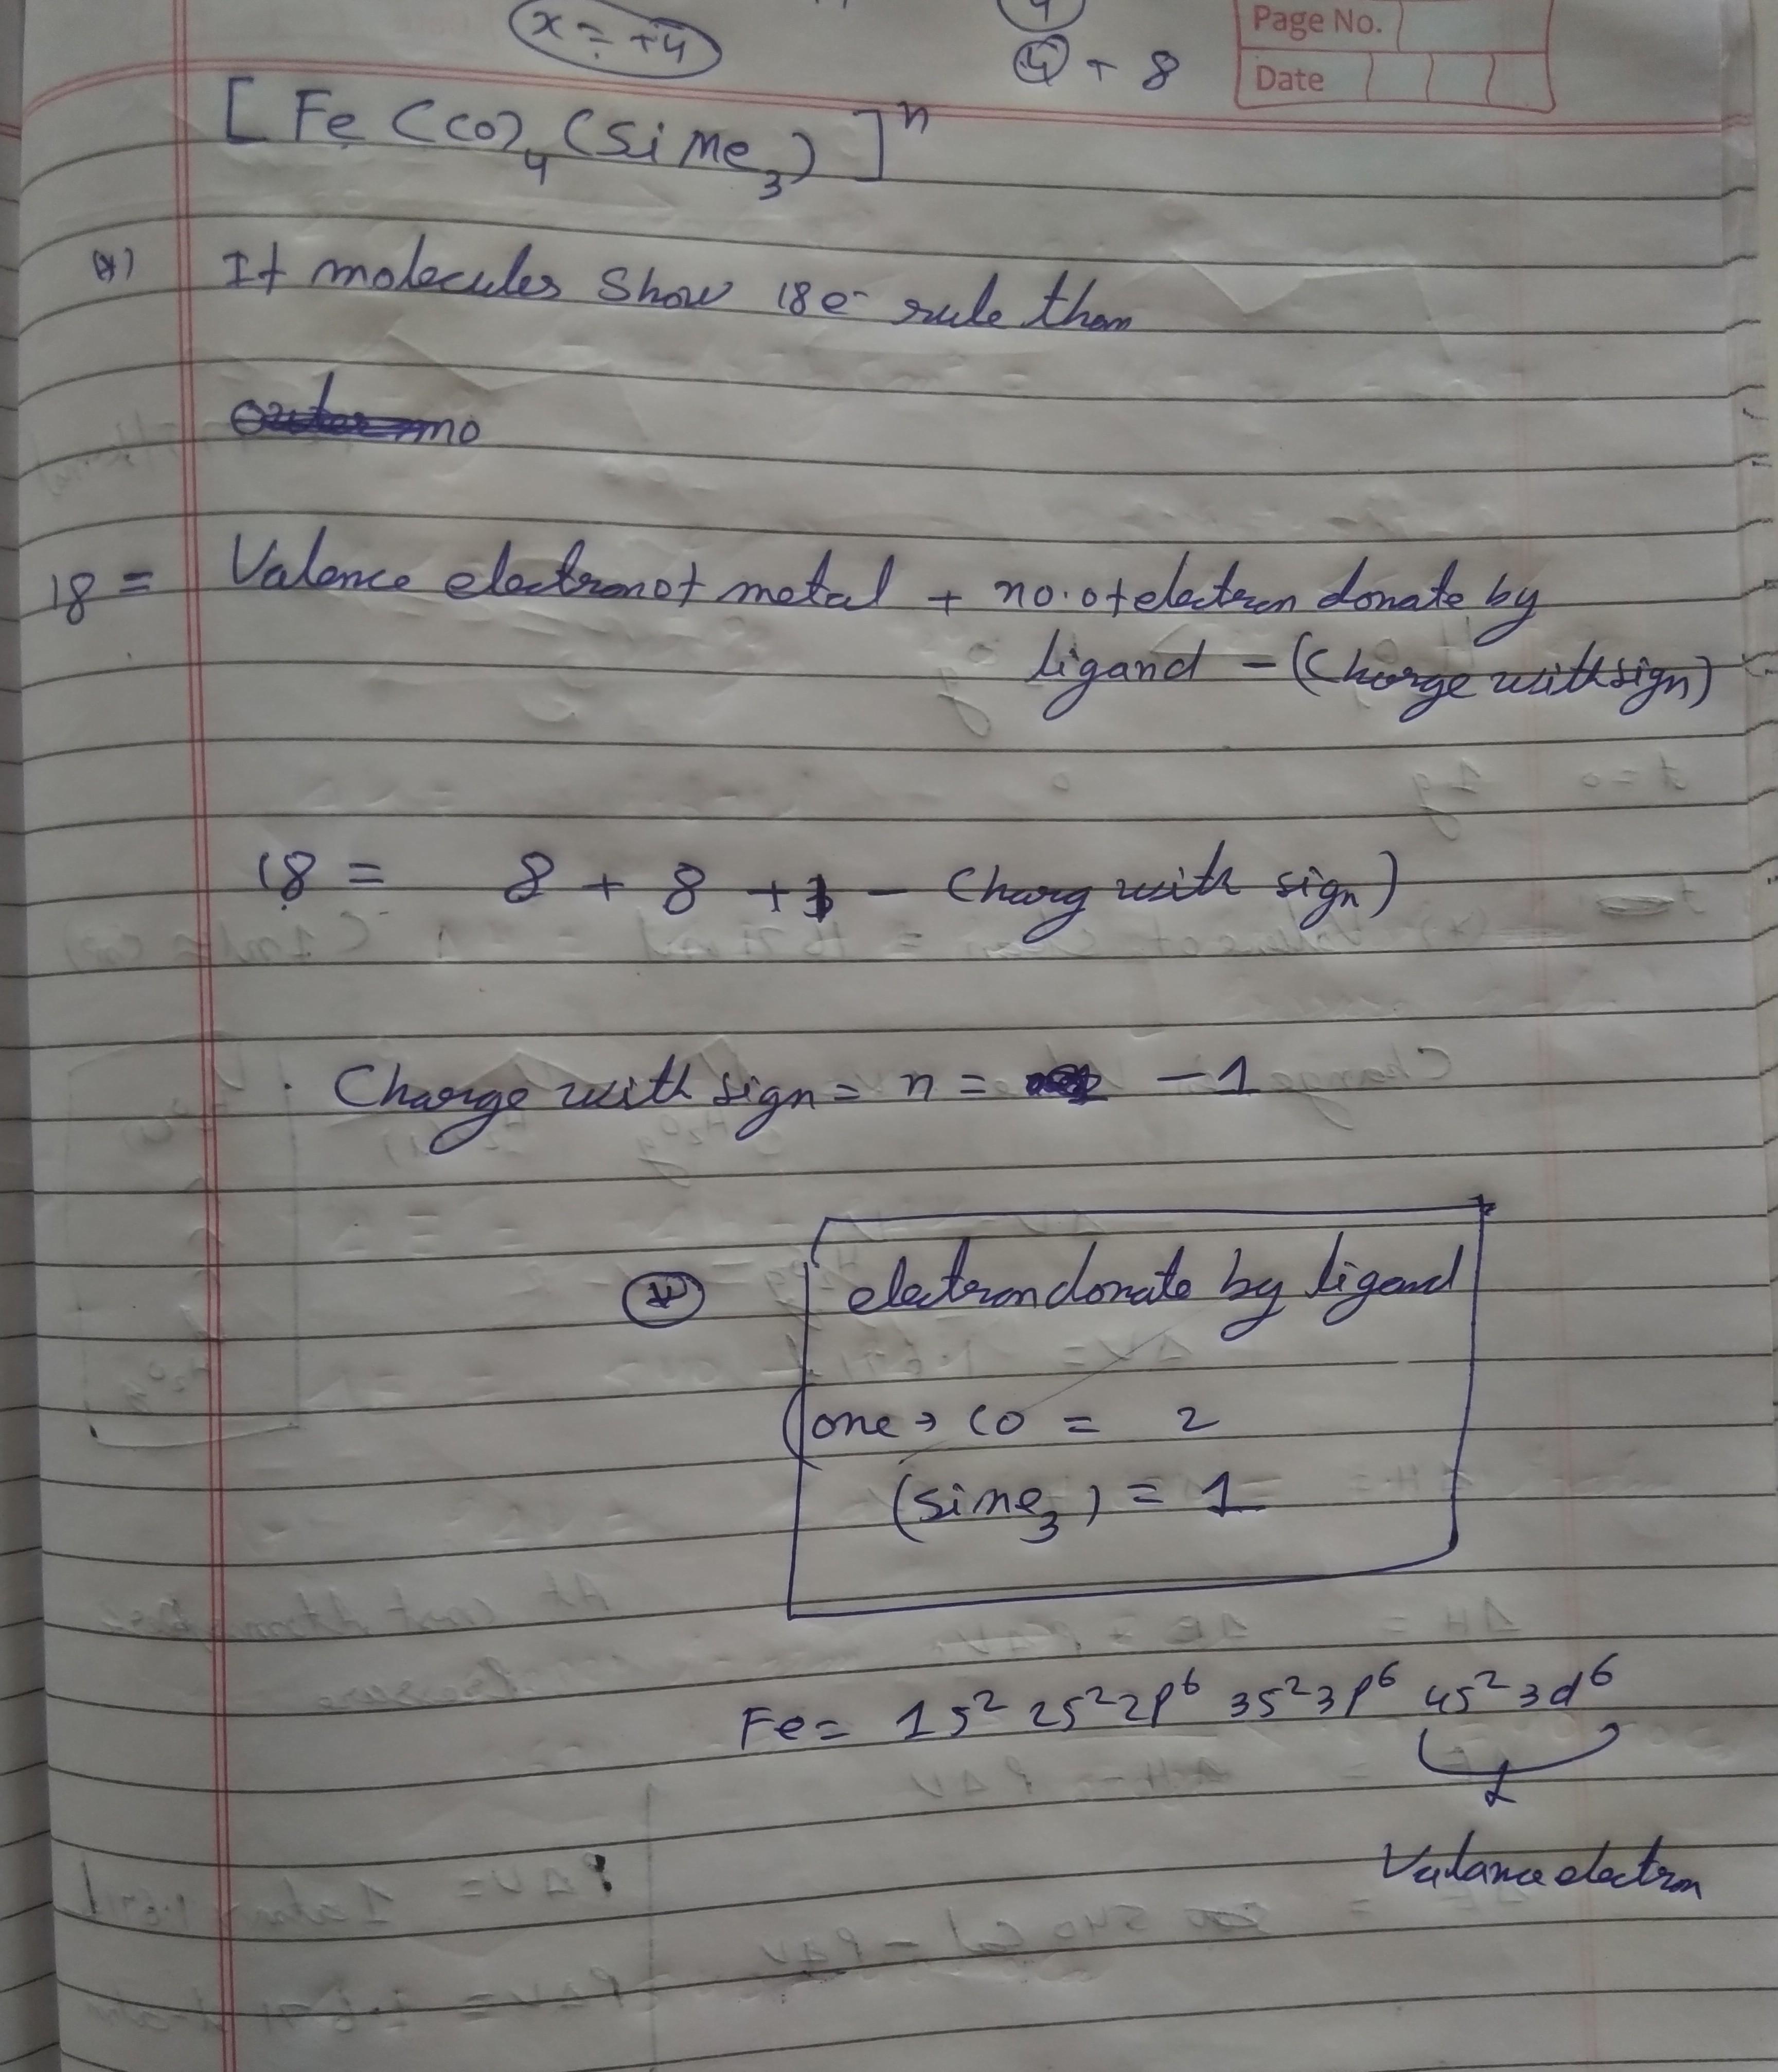 x = +4
4
4 + 8
Page No.
Date
[Fe(CO)4(SiMe3)]^n
If molecules show 18e- rule then
18 = Valence electron of metal + no. of electron donate by
ligand - (Charge with sign)
18 = 8 + 8 + 1 - Charg with sign)
Charge with sign = n = -1
electron donate by ligand
(one → CO = 2
(Sime3) = 1
Fe = 1s² 2s² 2p⁶ 3s² 3p⁶ 4s² 3d⁶
Valance electron